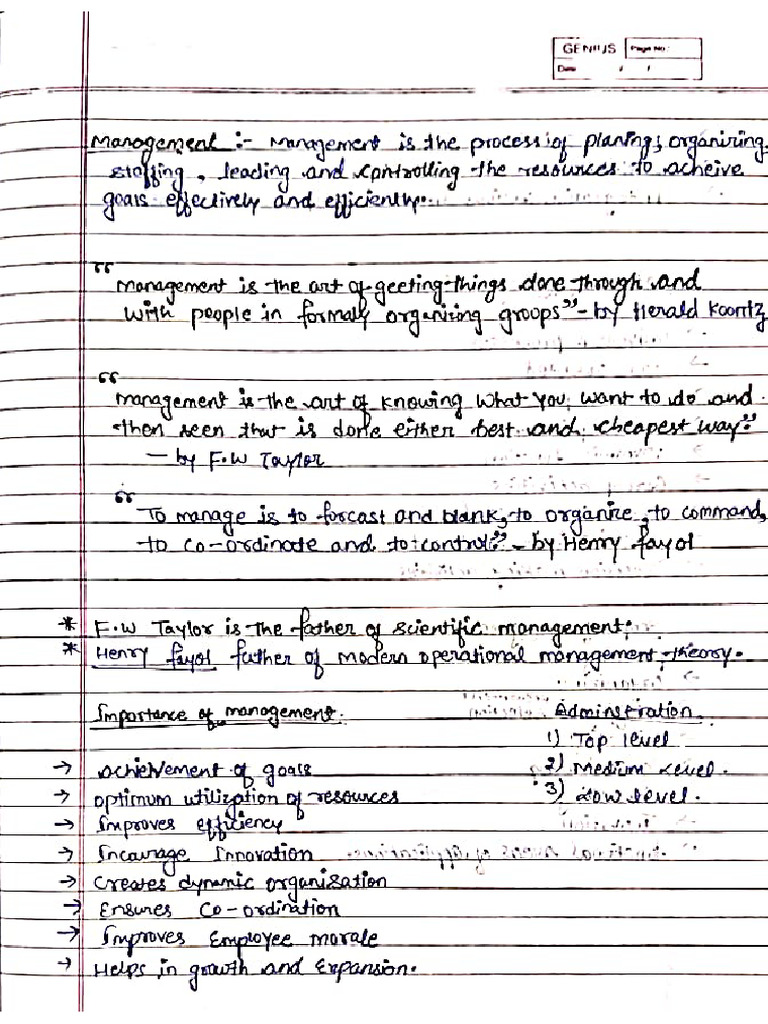 GENIUS Page No.
Date / /
Management :- Management is the process of planing, organizing,
staffing, leading and controlling the resources to acheive
goals effectively and efficiently.
"Management is the art of geeting things done through and
with people in formally organizing groops" - by Herald Koontz
"Management is the art of knowing what you want to do and
then seen that is done either best and cheapest way."
- by F.W Taylor
"To manage is to forcast and blank, to organize, to command,
to co-ordinate and to control." - by Henry fayol
* F.W Taylor is the father of scientific management.
* Henry fayol father of modern operational management theory.
Importance of management.
→ achievement of goals
→ optimum utilization of resources
→ Improves efficiency
→ Incaurage Innovation
→ Creates dynamic organisation
→ Ensures Co-ordination
→ Improves Employee morale
→ Helps in growth and Expansion.
Adminstration.
1) Top level
2) Medium Level.
3) Low level.